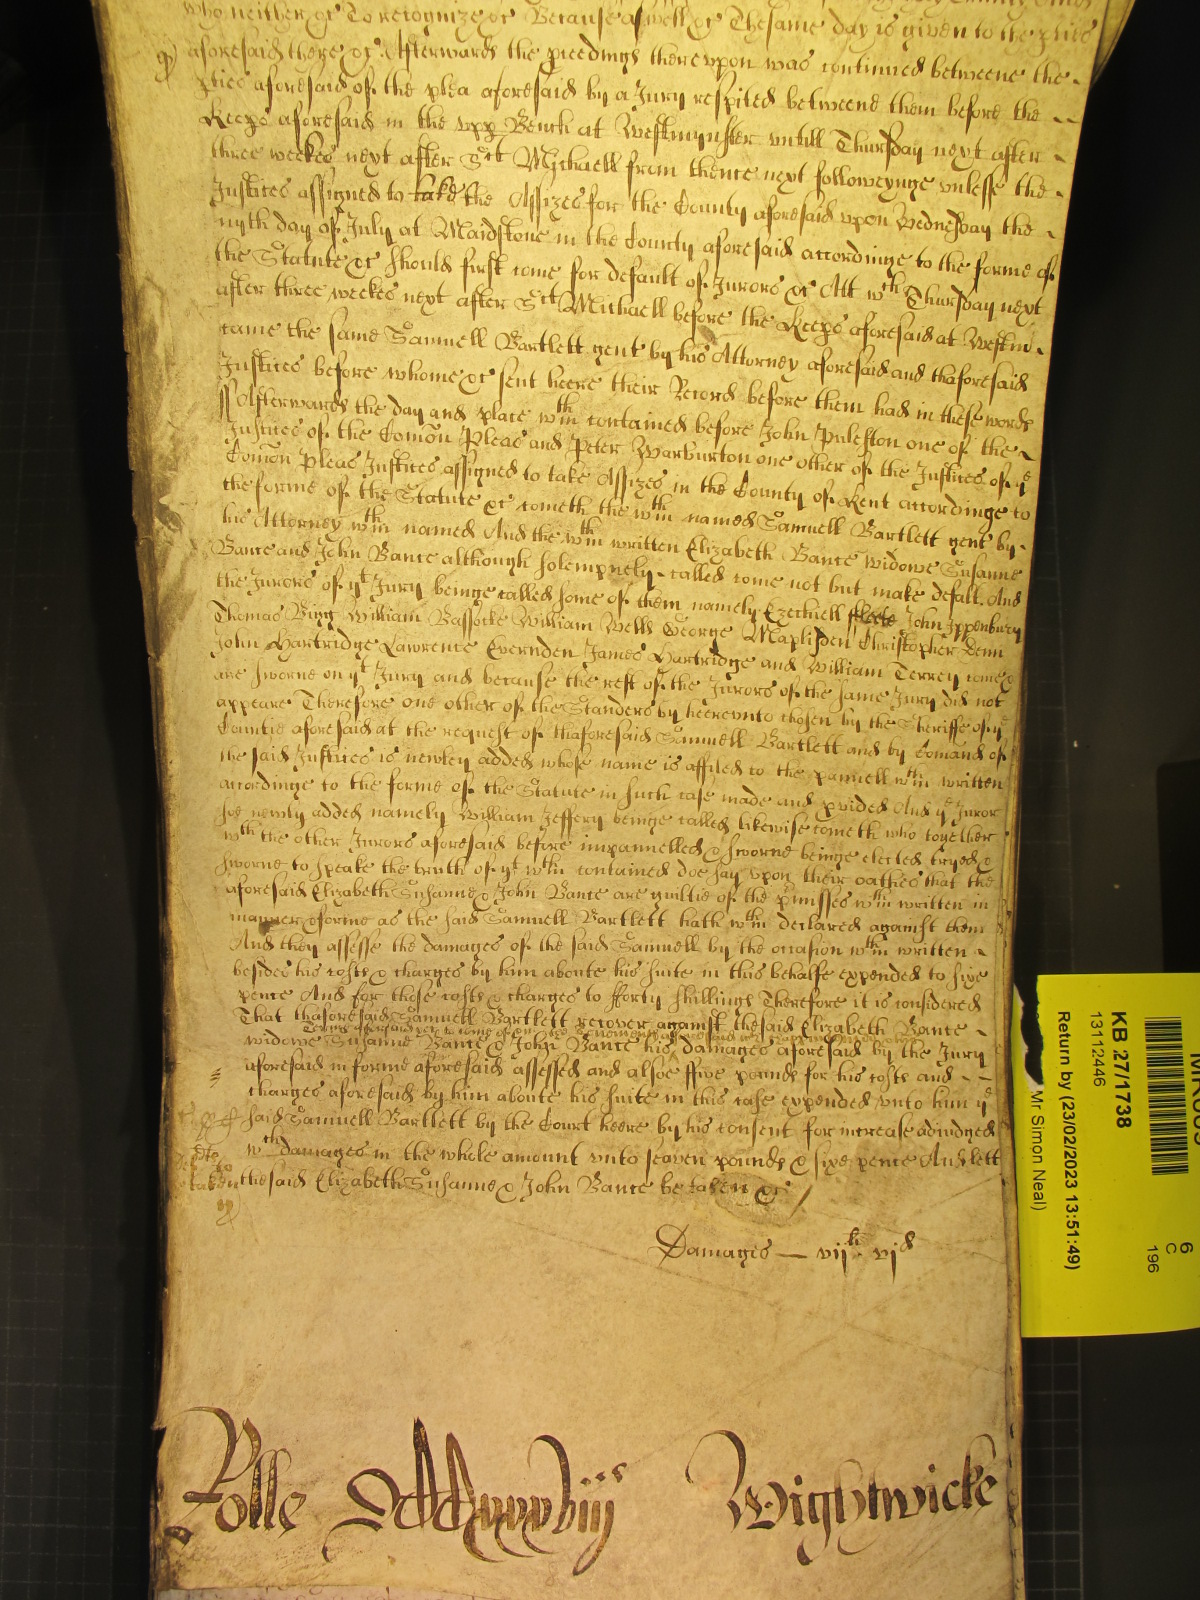 who neither &c To recognize &c Because aswell &c The same day is given to the pties
aforesaid there &c Afterwards the pceedings therevpon was continued betweene the
pties aforesaid of the plea aforesaid by a Jury respited betweene them before the
Keeps aforesaid in the vpp Bench at Westminster vntill Thursday next after
three weekes next after Sct Michaell from thence next followeynge vnlesse the
Justices assigned to take the Assizes for the County aforesaid vpon Wednesday the
nyth day of July at Maidstone in the County aforesaid accordinge to the forme of
the Statute &c should first come for default of Jurors &c Att wth Thursday next
after three weekes next after Sct Michaell before the Keeps aforesaid at Westm
came the same Samuell Bartlett gent by his Attorney aforesaid and thaforesaid
Justices before whome &c sent heere their Record before them had in these words
ss Afterwards the day and place wthin contained before John Puleston one of the
Justices of the Comon Pleas and Peter Warburton one other of the Justices of ye
Comon Pleas Justices assigned to take Assizes in the County of Kent accordinge to
the forme of the Statute &c cometh the wthin named Samuell Bartlett gent by
his Attorney wthin named And the wthin written Elizabeth Bance widowe Susanne
Bance and John Bance although solempnely called come not but make defalt And
the Jurors of yt Jury beinge called some of them namely Ezechiell John Ippenbury
Thomas Bigg William Bassocke William Wells George Maplisden Christopher Denn
John Hartridge Lawrence Evernden James Hartridge and William Terrey come &
are sworne on yt Jury and because the rest of the Jurors of the same Jury did not
appeare Therefore one other of the Standers by heerevnto chosen by the Sheriffe of ye
Countie aforesaid at the request of thaforesaid Samuell Bartlett and by Comand of
the said Justices is newley added whose name is affiled to the pannell wthin written
accordinge to the forme of the Statute in such case made and pvided And ye Juror
soe newly added namely William Jeffery beinge called likewise cometh who together
wth the other Jurors aforesaid before impannelled & sworne beinge elected tryed &
sworne to speake the truth of ye wthin contained doe say vpon their oathes that the
aforesaid Elizabeth Susanne & John Bance are guiltie of the pmisses wthin written in
manner & forme as the said Samuell Bartlett hath wthin declared against them
And they assesse the damages of the said Samuell by the occasion wthin written
besides his costs & charges by him aboute his suite in this behalfe expended to sixe
pence And for those costs & charges to fforty shillings Therefore it is considered
That thaforesaid Samuell Bartlett recover against thesaid Elizabeth Bance
widowe Susanne Bance & John Bance his damages aforesaid by the Jury
aforesaid in forme aforesaid assessed and alsoe ffive pounds for his costs and
charges aforesaid by him aboute his suite in this case expended vnto him ye
said Samuell Bartlett by the Court heere by his consent for increase adiudged
wth damages in the whole amount vnto seaven pounds & sixe pence And lett
thesaid Elizabeth Susanne & John Bance be taken &c
Damages — vijli vjd
Rolle Wightwicke
KB 27/1738
13112446
Return by (23/02/2023 13:51:49)
Mr Simon Neal)
6
C
196